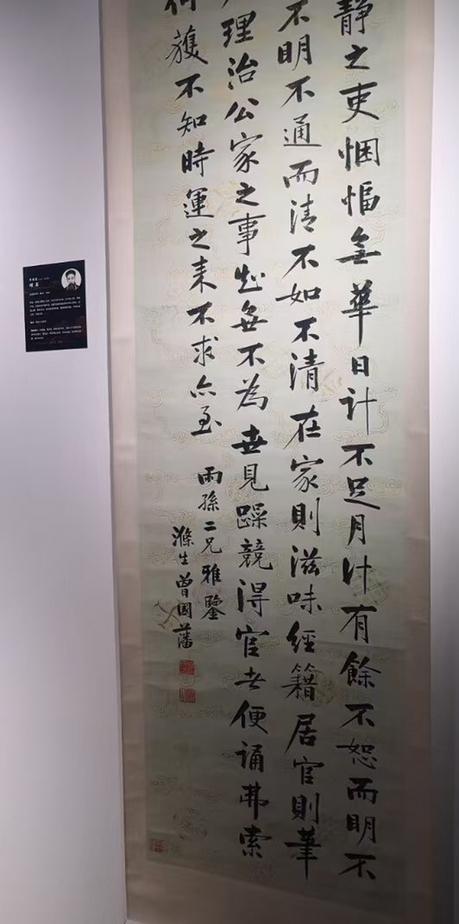 静之吏悃愊無華日計不足月計有餘不恕而明不
不明不通而清不如不清在家則滋味經籍居官則筆
理治公家之事知無不為世見躁競得官者便誦弗索
何獲不知時運之来不求亦至
雨孫二兄雅鑒
滌生曾國藩